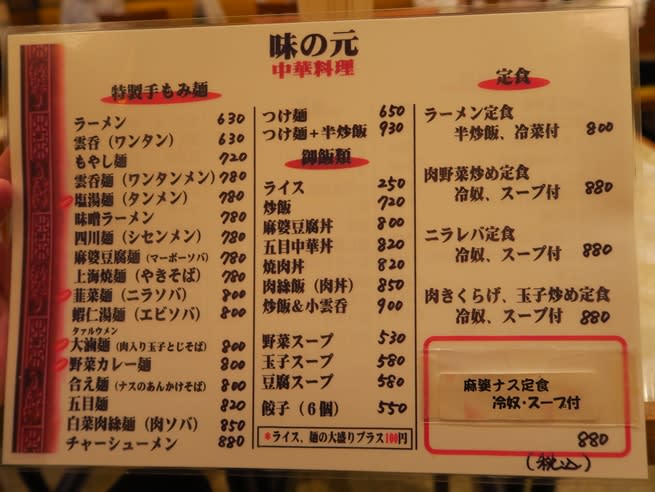 味の元
中華料理
特製手もみ麺
ラーメン 630
雲呑(ワンタン) 630
もやし麺 720
雲呑麺(ワンタンメン) 780
塩湯麺(タンメン) 780
味噌ラーメン 780
四川麺(シセンメン) 780
麻婆豆腐麺(マーボーソバ) 780
上海焼麺(やきそば) 780
韮菜麺(ニラソバ) 800
蝦仁湯麺(エビソバ) 800
タァルウメン
大滷麺(肉入り玉子とじそば) 800
野菜カレー麺 800
合え麺(ナスのあんかけそば) 800
五目麺 820
白菜肉絲麺(肉ソバ) 850
チャーシューメン 880
つけ麺 650
つけ麺+半炒飯 930
御飯類
ライス 250
炒飯 720
麻婆豆腐丼 800
五目中華丼 820
焼肉丼 820
肉絲飯(肉丼) 850
炒飯&小雲呑 900
野菜スープ 530
玉子スープ 580
豆腐スープ 580
餃子(6個) 550
*ライス、麺の大盛りプラス100円
定食
ラーメン定食
半炒飯、冷菜付 800
肉野菜炒め定食
冷奴、スープ付 880
ニラレバ定食
冷奴、スープ付 880
肉きくらげ、玉子炒め定食
冷奴、スープ付 880
麻婆ナス定食
冷奴・スープ付
880
(税込)